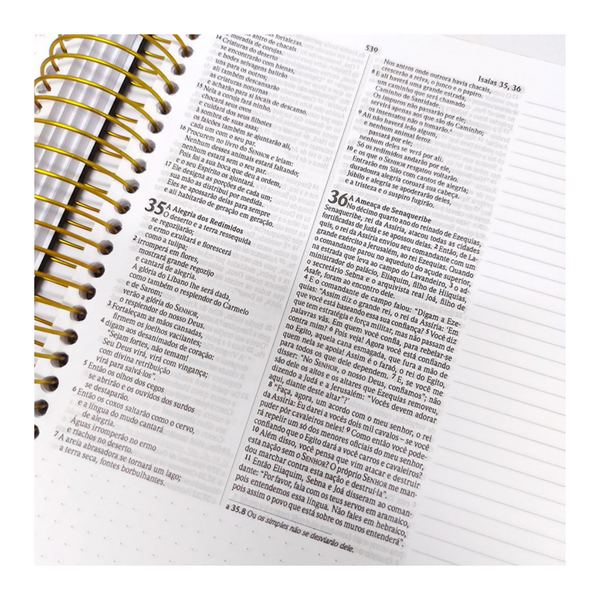 539
Isaías 35, 36
fortalezas.
moradia de corujas.
antro de chacais
14 Criaturas do deserto
se encontrarão com hienas,
e bodes selvagens balirão
uns para os outros;
ali também descansarão
as criaturas noturnas
e acharão para si locais de descanso.
15 Nela a coruja fará ninho,
chocará seus ovos
e cuidará dos seus filhotes
à sombra de suas asas;
os falcões também se ajuntarão ali,
cada um com o seu par.
16 Procurem no livro do SENHOR e leiam:
Nenhum desses animais estará faltando;
nenhum estará sem o seu par.
Pois foi a sua boca que deu a ordem,
e o seu Espírito os ajuntará.
17 Ele designa as porções de cada um;
sua mão as distribui por medida.
Eles se apossarão delas para sempre
e ali habitarão de geração em geração.
35 A Alegria dos Redimidos
O deserto e a terra ressequida
se regozijarão;
o ermo exultará e florescerá
como a tulipa;
2 irromperá em flores,
mostrará grande regozijo
e cantará de alegria.
A glória do Líbano lhe será dada,
como também o resplendor do Carmelo
e de Sarom;
verão a glória do SENHOR,
o resplendor do nosso Deus.
3 Fortaleçam as mãos cansadas,
firmem os joelhos vacilantes;
4 digam aos desanimados de coração:
"Sejam fortes, não temam!
Seu Deus virá, virá com vingança;
com divina retribuição
virá para salvá-los".
5 Então os olhos dos cegos
se abrirão e os ouvidos dos surdos
se destaparão.
6 Então os coxos saltarão como o cervo,
e a língua do mudo cantará
de alegria.
Águas irromperão no ermo
e riachos no deserto.
7 A areia abrasadora se tornará um lago;
a terra seca, fontes borbulhantes.
Nos antros onde outrora havia chacais,
crescerão a relva, o junco e o papiro.
8 E ali haverá uma grande estrada,
um caminho que será chamado
Caminho de Santidade.
Os impuros não passarão por ele;
servirá apenas aos que são do Caminho;
os insensatos não o tomarão.a
9 Ali não haverá leão algum,
e nenhum animal feroz
passará por ele;
nenhum deles se verá por ali.
Só os redimidos andarão por ele,
10 e os que o SENHOR resgatou voltarão.
Entrarão em Sião com cantos de alegria;
duradoura alegria coroará sua cabeça.
Júbilo e alegria se apoderarão deles,
e a tristeza e o suspiro fugirão.
36 A Ameaça de Senaqueribe
No décimo quarto ano do reinado de Ezequias,
Senaqueribe, rei da Assíria, atacou todas as cidades
fortificadas de Judá e se apossou delas. 2 Então, de La-
quis, o rei da Assíria enviou seu comandante com um
grande exército a Jerusalém, ao rei Ezequias. Quando
o comandante parou no aqueduto do açude superior,
na estrada que leva ao campo do Lavandeiro, 3 o ad-
ministrador do palácio, Eliaquim, filho de Hilquias,
o secretário Sebna e o arquivista real Joá, filho de
Asafe, foram ao encontro dele.
4 E o comandante de campo falou: "Digam a Eze-
quias: 'Assim diz o grande rei, o rei da Assíria: 'Em
que você está baseando essa sua confiança? 5 Você diz
que tem estratégia e força militar, mas não passam de
palavras vãs. Em quem você confia, para rebelar-se
contra mim? 6 Pois veja! Agora você está confiando
no Egito, aquela cana esmagada, que fura a mão de
quem nela se apoia! Assim é o faraó, o rei do Egito,
para todos os que dele dependem. 7 E, se você me
disser: "No SENHOR, o nosso Deus, confiamos"; não
são dele os altos e os altares que Ezequias removeu,
dizendo a Judá e a Jerusalém: "Vocês devem adorar
aqui, diante deste altar"?'
8 "Faça, agora, um acordo com o meu senhor, o rei
da Assíria: Eu darei a você dois mil cavalos – se você
puder pôr cavaleiros neles! 9 Como então você pode-
rá repelir um só dos menores oficiais do meu senhor,
confiando que o Egito dará a você carros e cavaleiros?
10 Além disso, você pensa que vim atacar e destruir
esta nação sem o SENHOR? O próprio SENHOR me man-
dou marchar contra esta nação e destruí-la".
11 Então Eliaquim, Sebna e Joá disseram ao coman-
dante: "Por favor, fala com os teus servos em aramaico,
pois entendemos essa língua. Não fales em hebraico,
pois assim o povo que está sobre os muros entenderá".
a 35.8 Ou os simples não se desviarão dele.